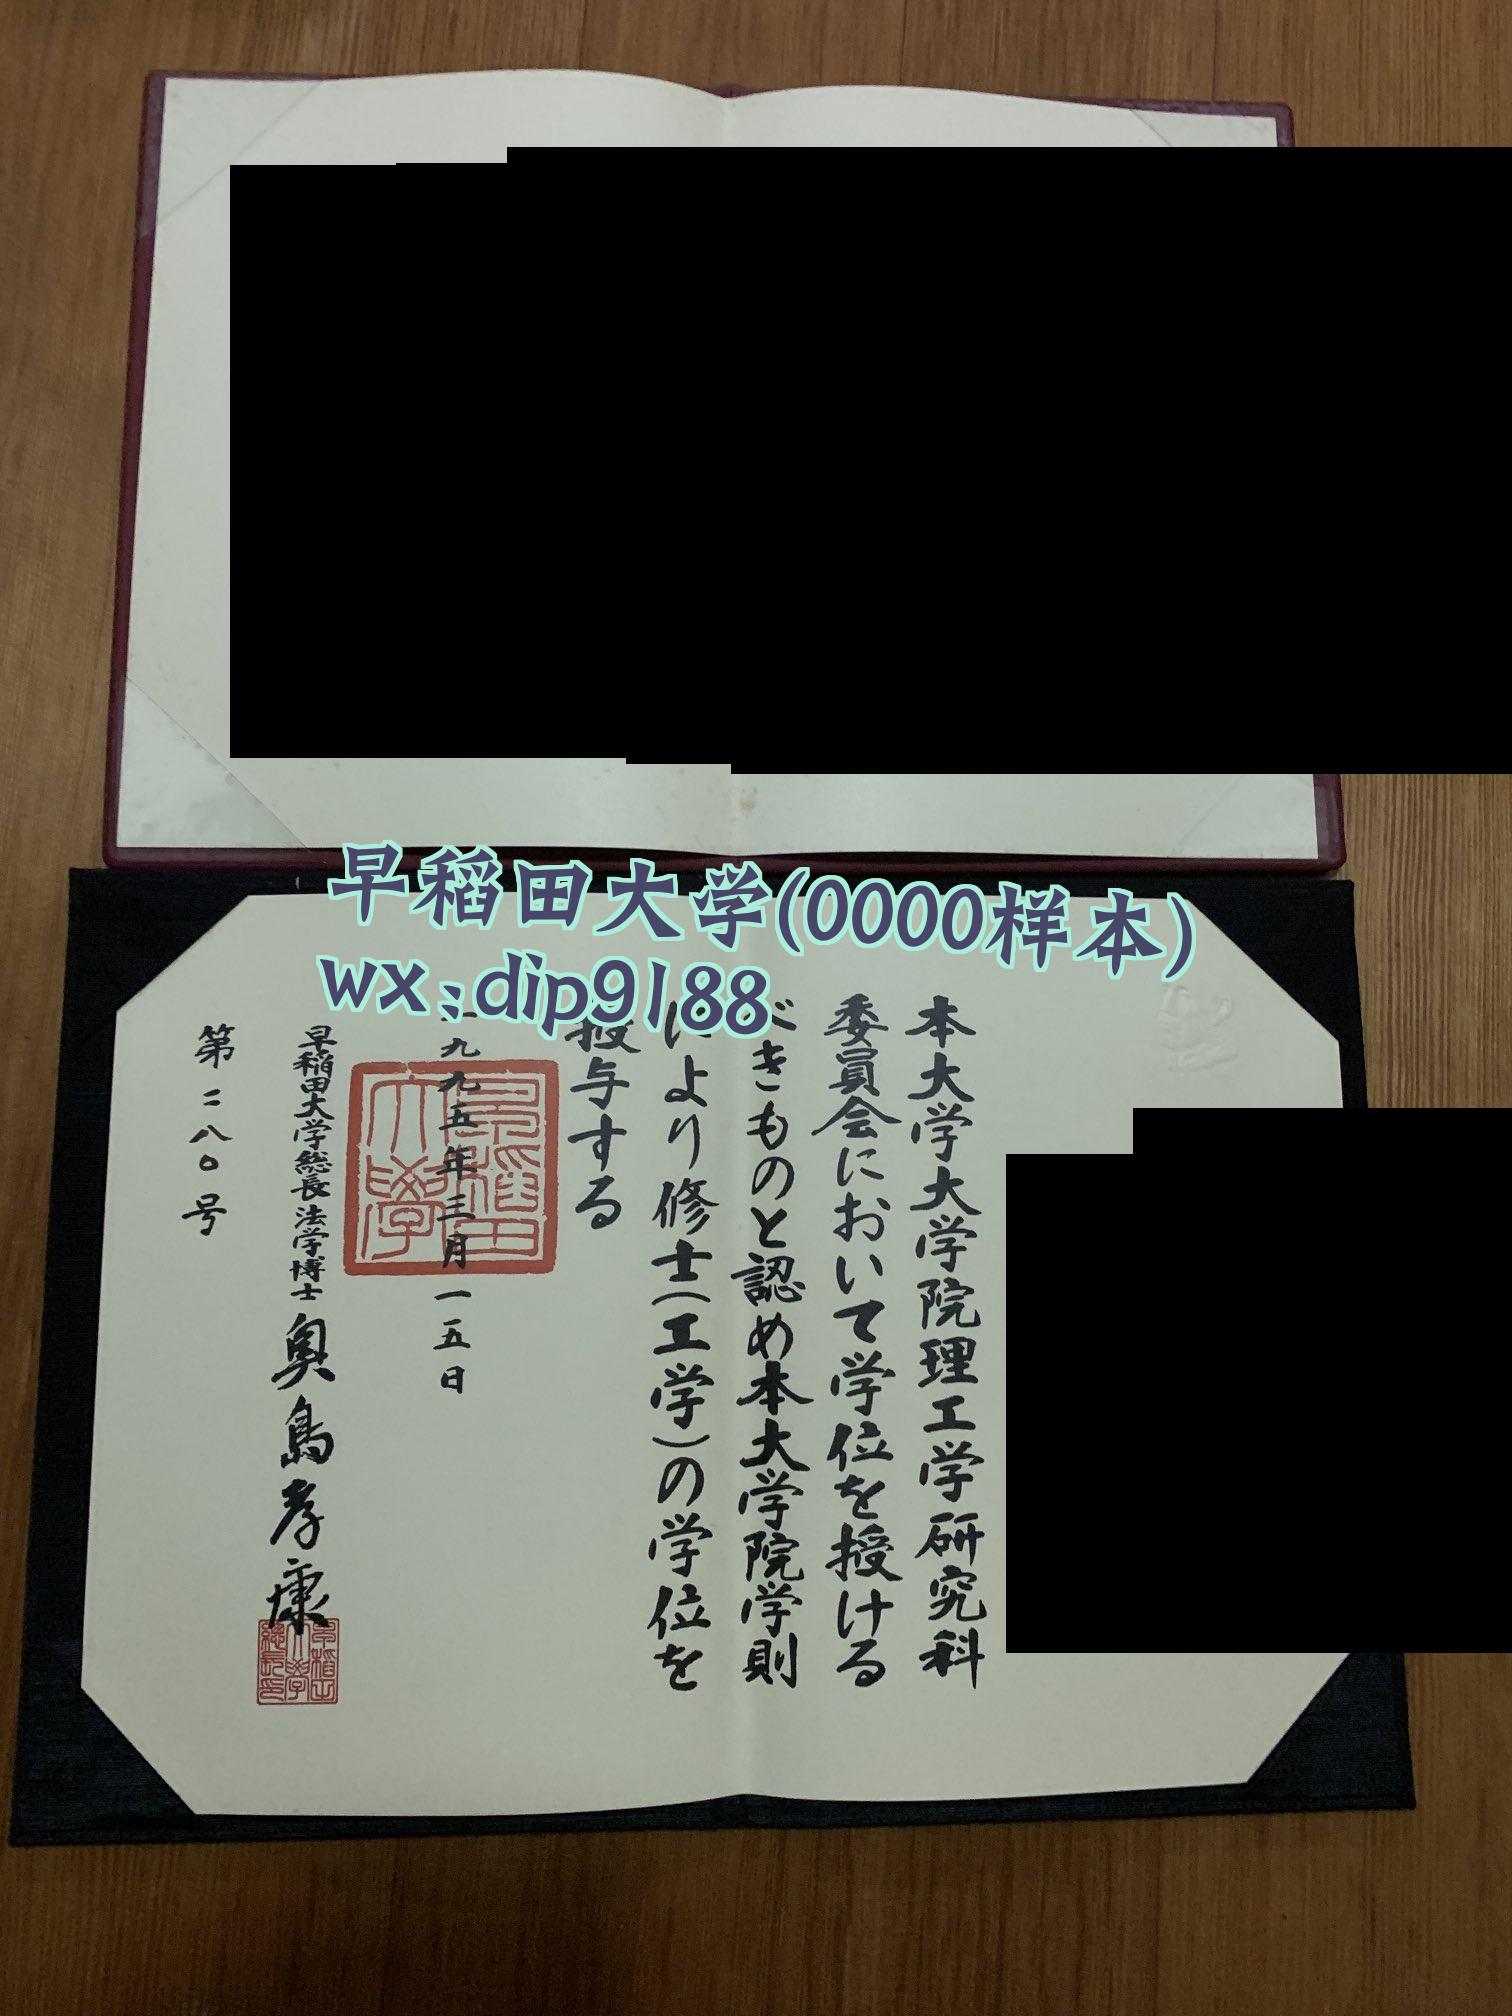 早稻田大学(0000样本)
wx:dip9188
本大学大学院理工学研究科
委員会において学位を授ける
べきものと認め本大学院学則
により修士(工学)の学位を
授与する
一九九五年三月一五日
早稲田大学
早稲田大学総長 法学博士 奥島孝康
早稲田大学総長印
第二八〇号